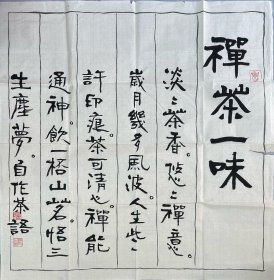 禪茶一味
淡淡茶香。悠悠禪意。
歲月幾多風波。人生些
許印痕。茶可清心。禪能
通神。飲一杯山茗。悟三
生塵夢。自作茶語